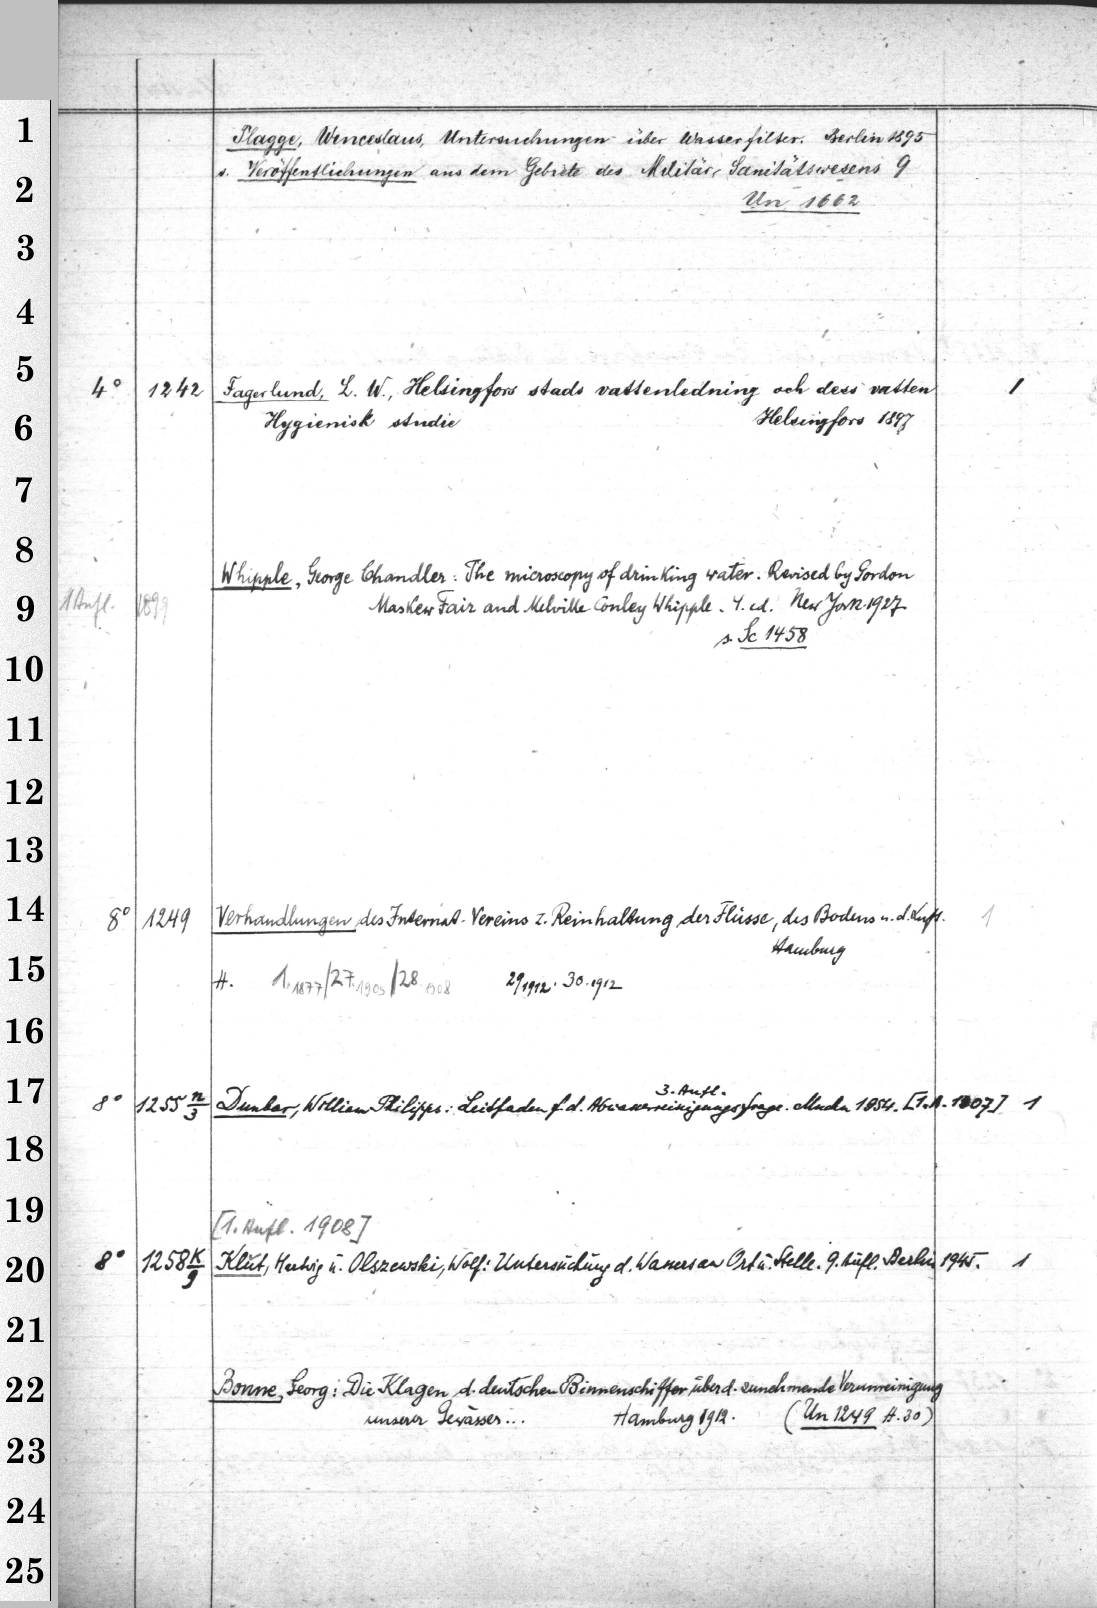 1
Plagge, Wenceslaus, Untersuchungen über Wasserfilter. Berlin 1895
2
s. Veröffentlichungen aus dem Gebiete des Militär, Sanitätswesens 9
Un 1662
3
4
5
4° 1242 Fagerlund, L. W., Helsingfors stads vattenledning och dess vatten 1
6
Hygienisk studie Helsingfors 1897
7
8
Whipple, George Chandler: The microscopy of drinking water. Revised by Gordon
9
1 Aufl. 1899 Maskew Fair and Melville Conley Whipple. 4. ed. New York 1927
s. Sc 1458
10
11
12
13
14
8° 1249 Verhandlungen des Internat. Vereins z. Reinhaltung der Flüsse, des Bodens u. d. Luft. 1
Hamburg
15
H. 1.1877/27.1905/28.1908 29/1912. 30.1912
16
17
3. Aufl.
8° 1255 n/3 Dunbar, William Philipps: Leitfaden f. d. Abwasserreinigungsfrage. Mchn 1954. [1. A. 1907] 1
18
19
[1. Aufl. 1908]
20
8° 1258 K/9 Klut, Hartwig u. Olszewski, Wolf: Untersuchung d. Wassers an Ort u. Stelle. 9. Aufl. Berlin 1945. 1
21
22
Bonne, Georg: Die Klagen d. deutschen Binnenschiffer über d. zunehmende Verunreinigung
unserer Gewässer... Hamburg 1912. (Un 1249 H. 30)
23
24
25